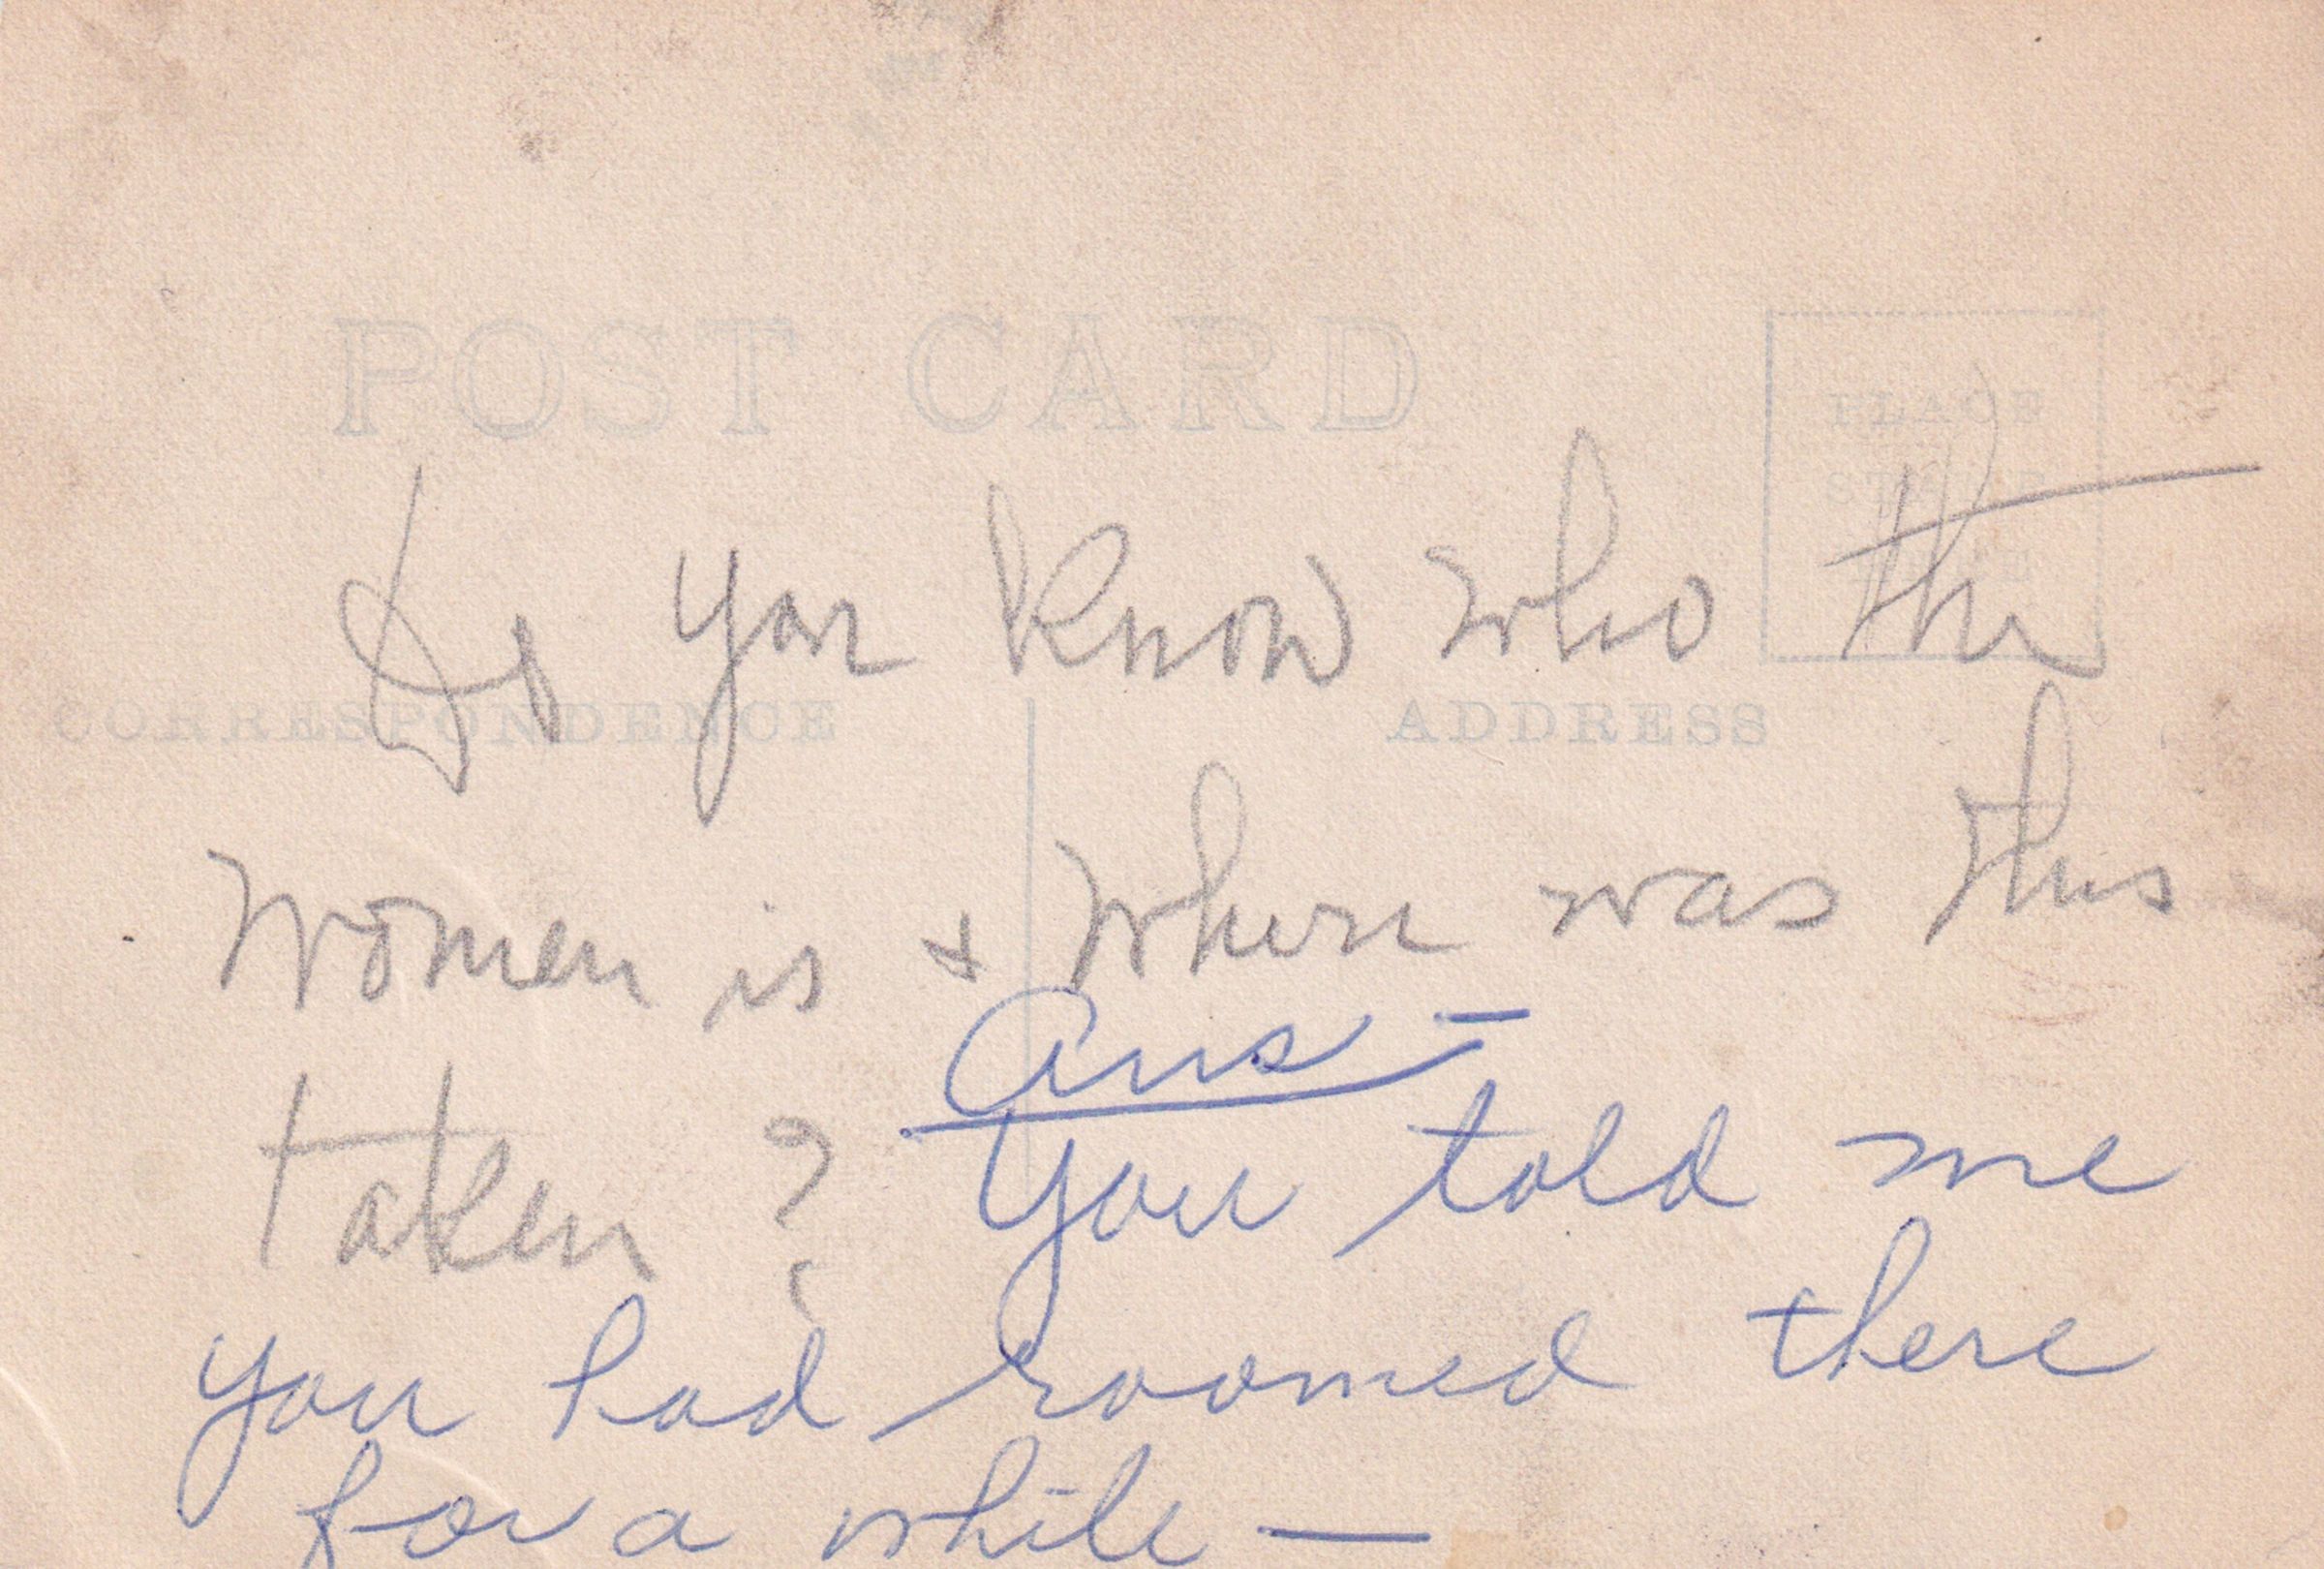 POST CARD
PLACE
STAMP
HERE
Do you know who the
CORRESPONDENCE
ADDRESS
Women is + Where was this
taken ?
Ans –
You told me
you had roomed there
for a while —